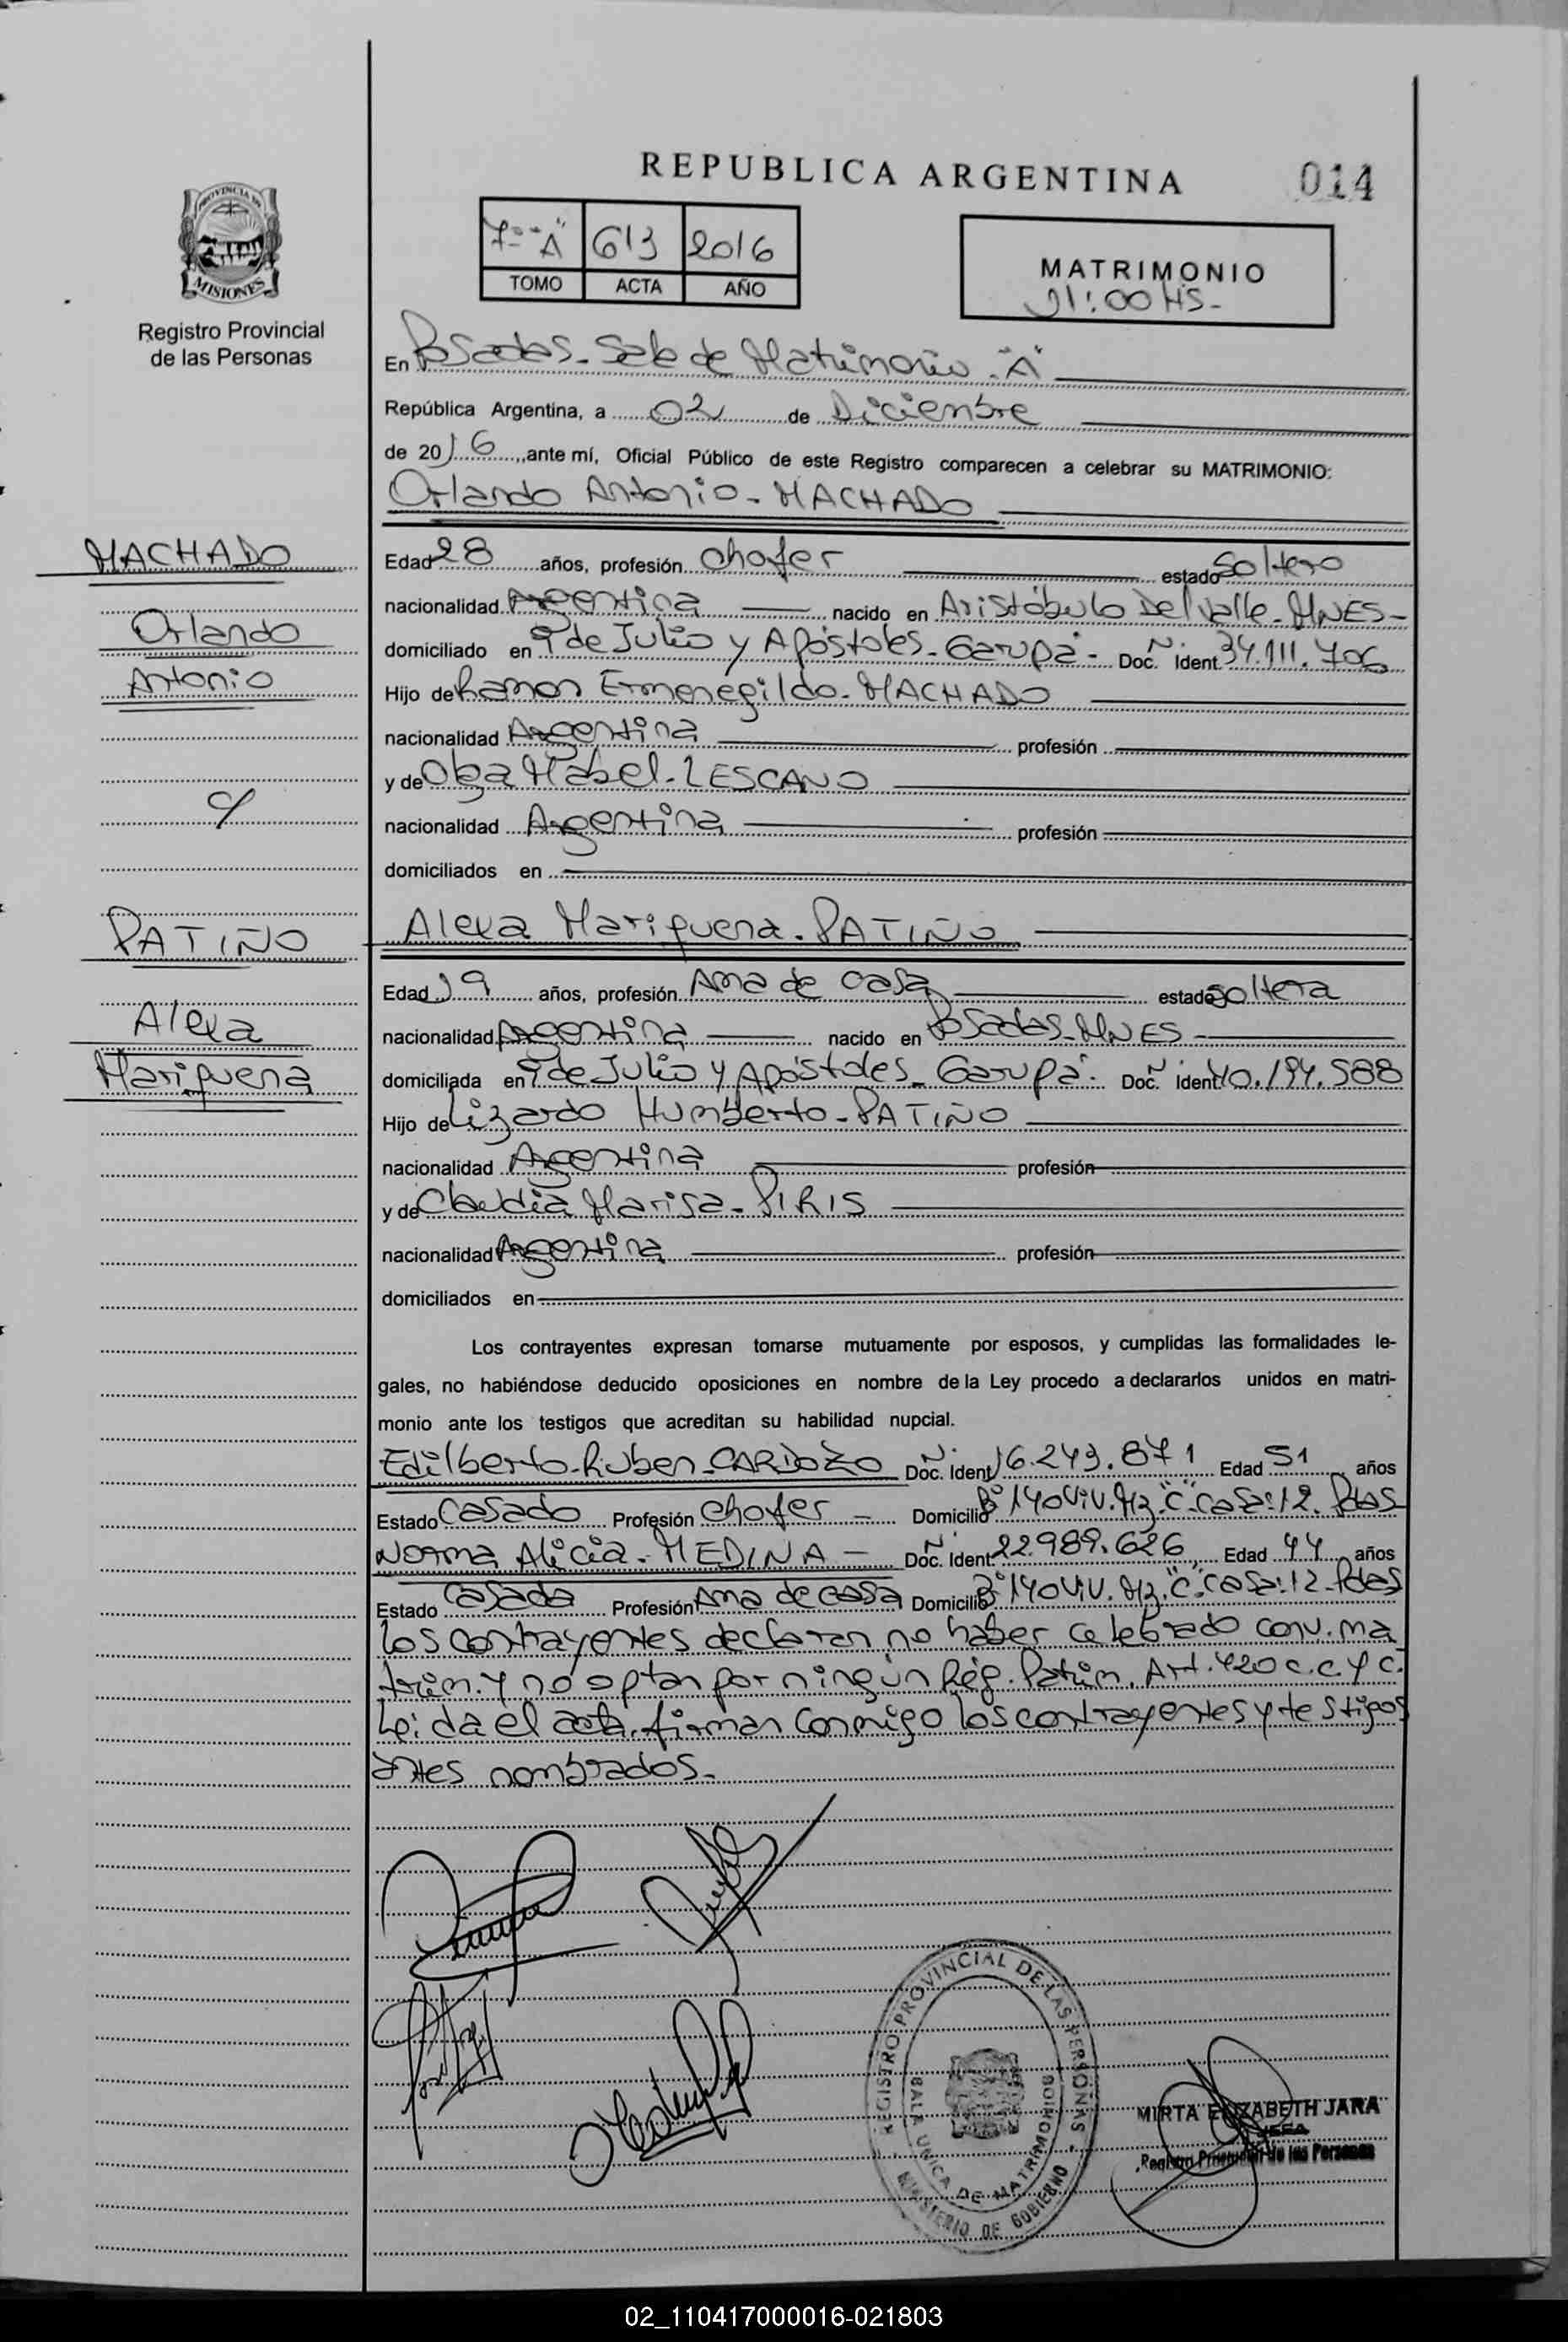 REPUBLICA ARGENTINA
014
PROVINCIA DE
MISIONES
Registro Provincial
de las Personas
7º "A" 613 2016
TOMO ACTA AÑO
MATRIMONIO
21:00 HS-
En Posadas - Sala de Matrimonio - "A"
República Argentina, a 02 de Diciembre
de 2016, ante mí, Oficial Público de este Registro comparecen a celebrar su MATRIMONIO:
Orlando Antonio - MACHADO
MACHADO
Orlando
Antonio
c/
PATIÑO
Alexa
Mariquena
Edad 28 años, profesión Chofer estado Soltero
nacionalidad Argentina nacido en Aristóbulo Del Valle - MNES -
domiciliado en 9 de Julio y Apóstoles - Garupá - Doc. Nº Ident. 34.111.706
Hijo de Ramon Ermenegildo - MACHADO
nacionalidad Argentina profesión
y de Olga Mabel - LESCANO
nacionalidad Argentina profesión
domiciliados en
Alexa Mariquena - PATIÑO
Edad 19 años, profesión Ama de casa estado Soltera
nacionalidad Argentina nacido en Posadas - MNES -
domiciliada en 9 de Julio y Apóstoles - Garupá - Doc. Nº Ident. 40.194.588
Hijo de Lizardo Humberto - PATIÑO
nacionalidad Argentina profesión
y de Claudia Marisa - PIRIS
nacionalidad Argentina profesión
domiciliados en
Los contrayentes expresan tomarse mutuamente por esposos, y cumplidas las formalidades le-
gales, no habiéndose deducido oposiciones en nombre de la Ley procedo a declararlos unidos en matri-
monio ante los testigos que acreditan su habilidad nupcial.
Edilberto Ruben - CARDOZO Doc. Nº Ident. 16.243.871 Edad 51 años
Estado Casado Profesión Chofer - Domicilio Bº 140 Viv. Mz. "C" Casa: 12. Pdas
Norma Alicia - MEDINA - Doc. Nº Ident. 22.989.626, Edad 44 años
Estado Casada Profesión Ama de casa Domicilio Bº 140 Viv. Mz. "C" Casa: 12 - Pdas
Los contrayentes declaran no haber celebrado conv. ma
trim. y no optan por ningún Rég. Patrim. Art. 420 C.C. y C.
Leída el acta, firman conmigo los contrayentes y testigos
antes nombrados -
REGISTRO PROVINCIAL DE LAS PERSONAS
SALA UNICA DE MATRIMONIOS
MINISTERIO DE GOBIERNO
MIRTA ELIZABETH JARA
JEFA
Registro Provincial de las Personas
02_110417000016-021803